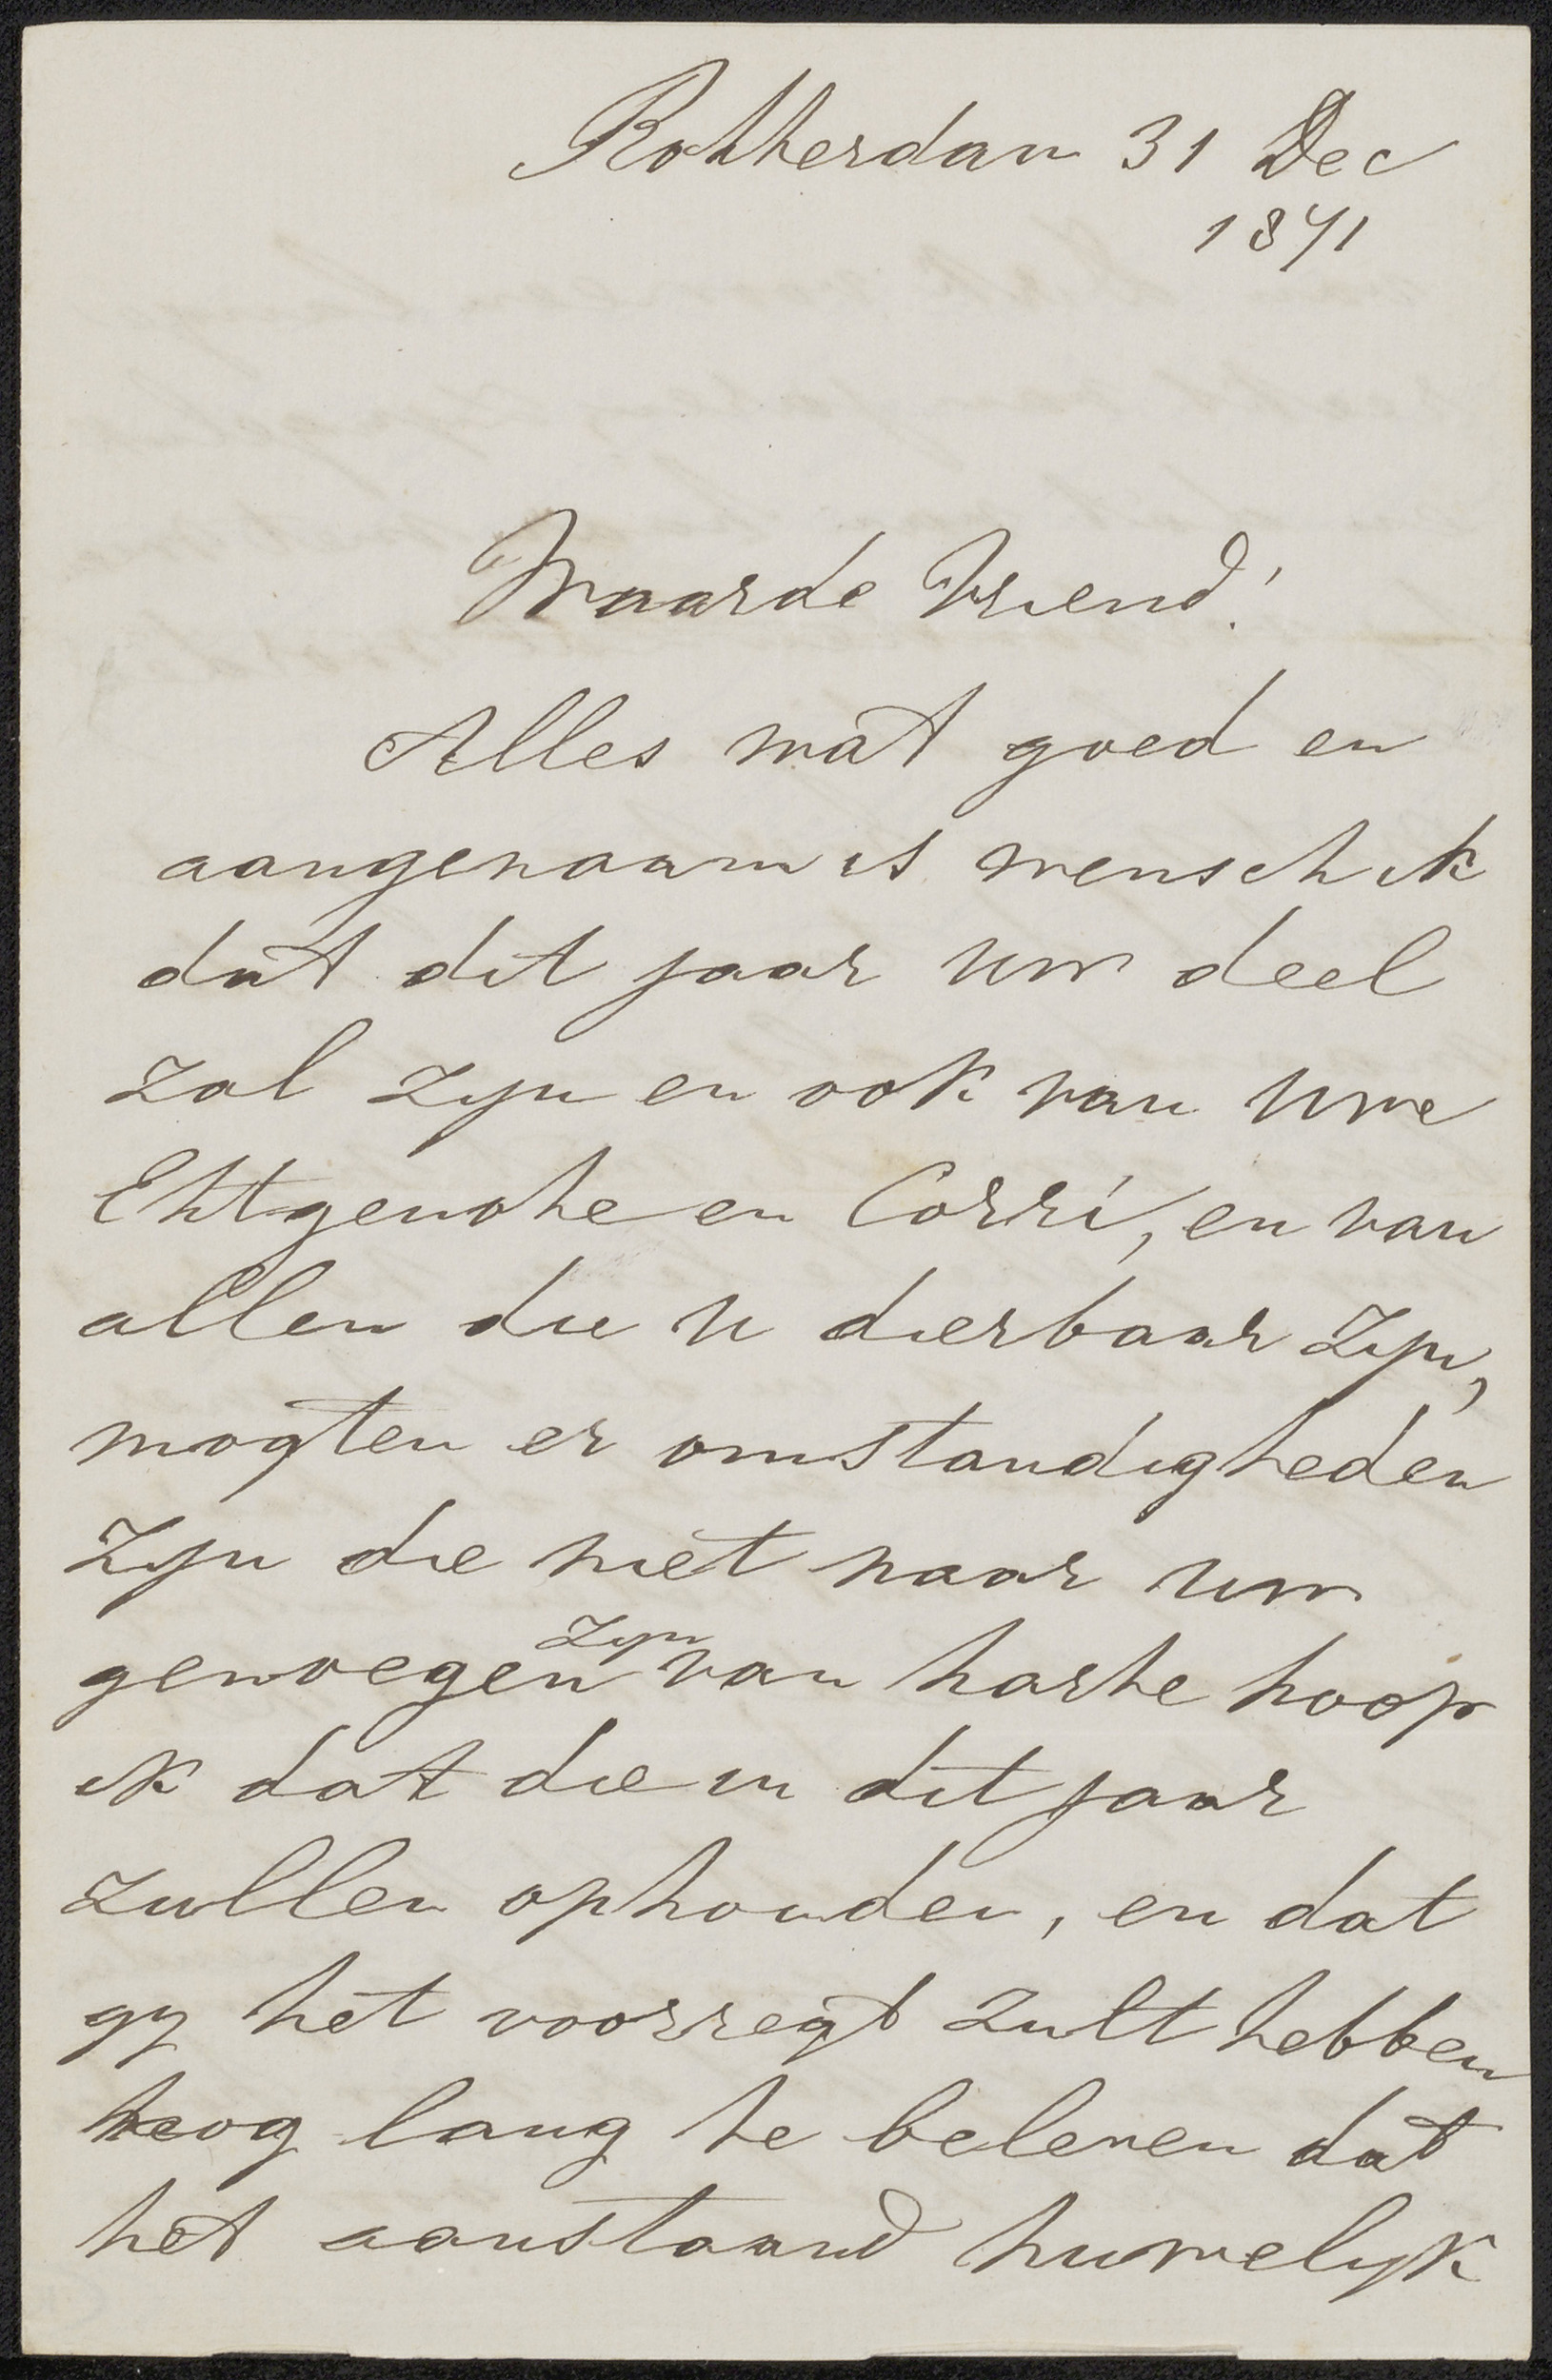 Rotterdam 31 Dec
1871
Waarde Vriend!
Alles wat goed en
aangenaam is wensch ik
dat dit jaar uw deel
zal zijn en ook van uwe
Ehtgenote en Corri, en van
allen die u dierbaar zijn,
mogten er omstandigheden
zijn die niet naar uw
genoegen zijn van harte hoop
ik dat die in dit jaar
zullen ophouden, en dat
gij het voorregt zult hebben
nog lang te beleven dat
het aanstaand huwelijk